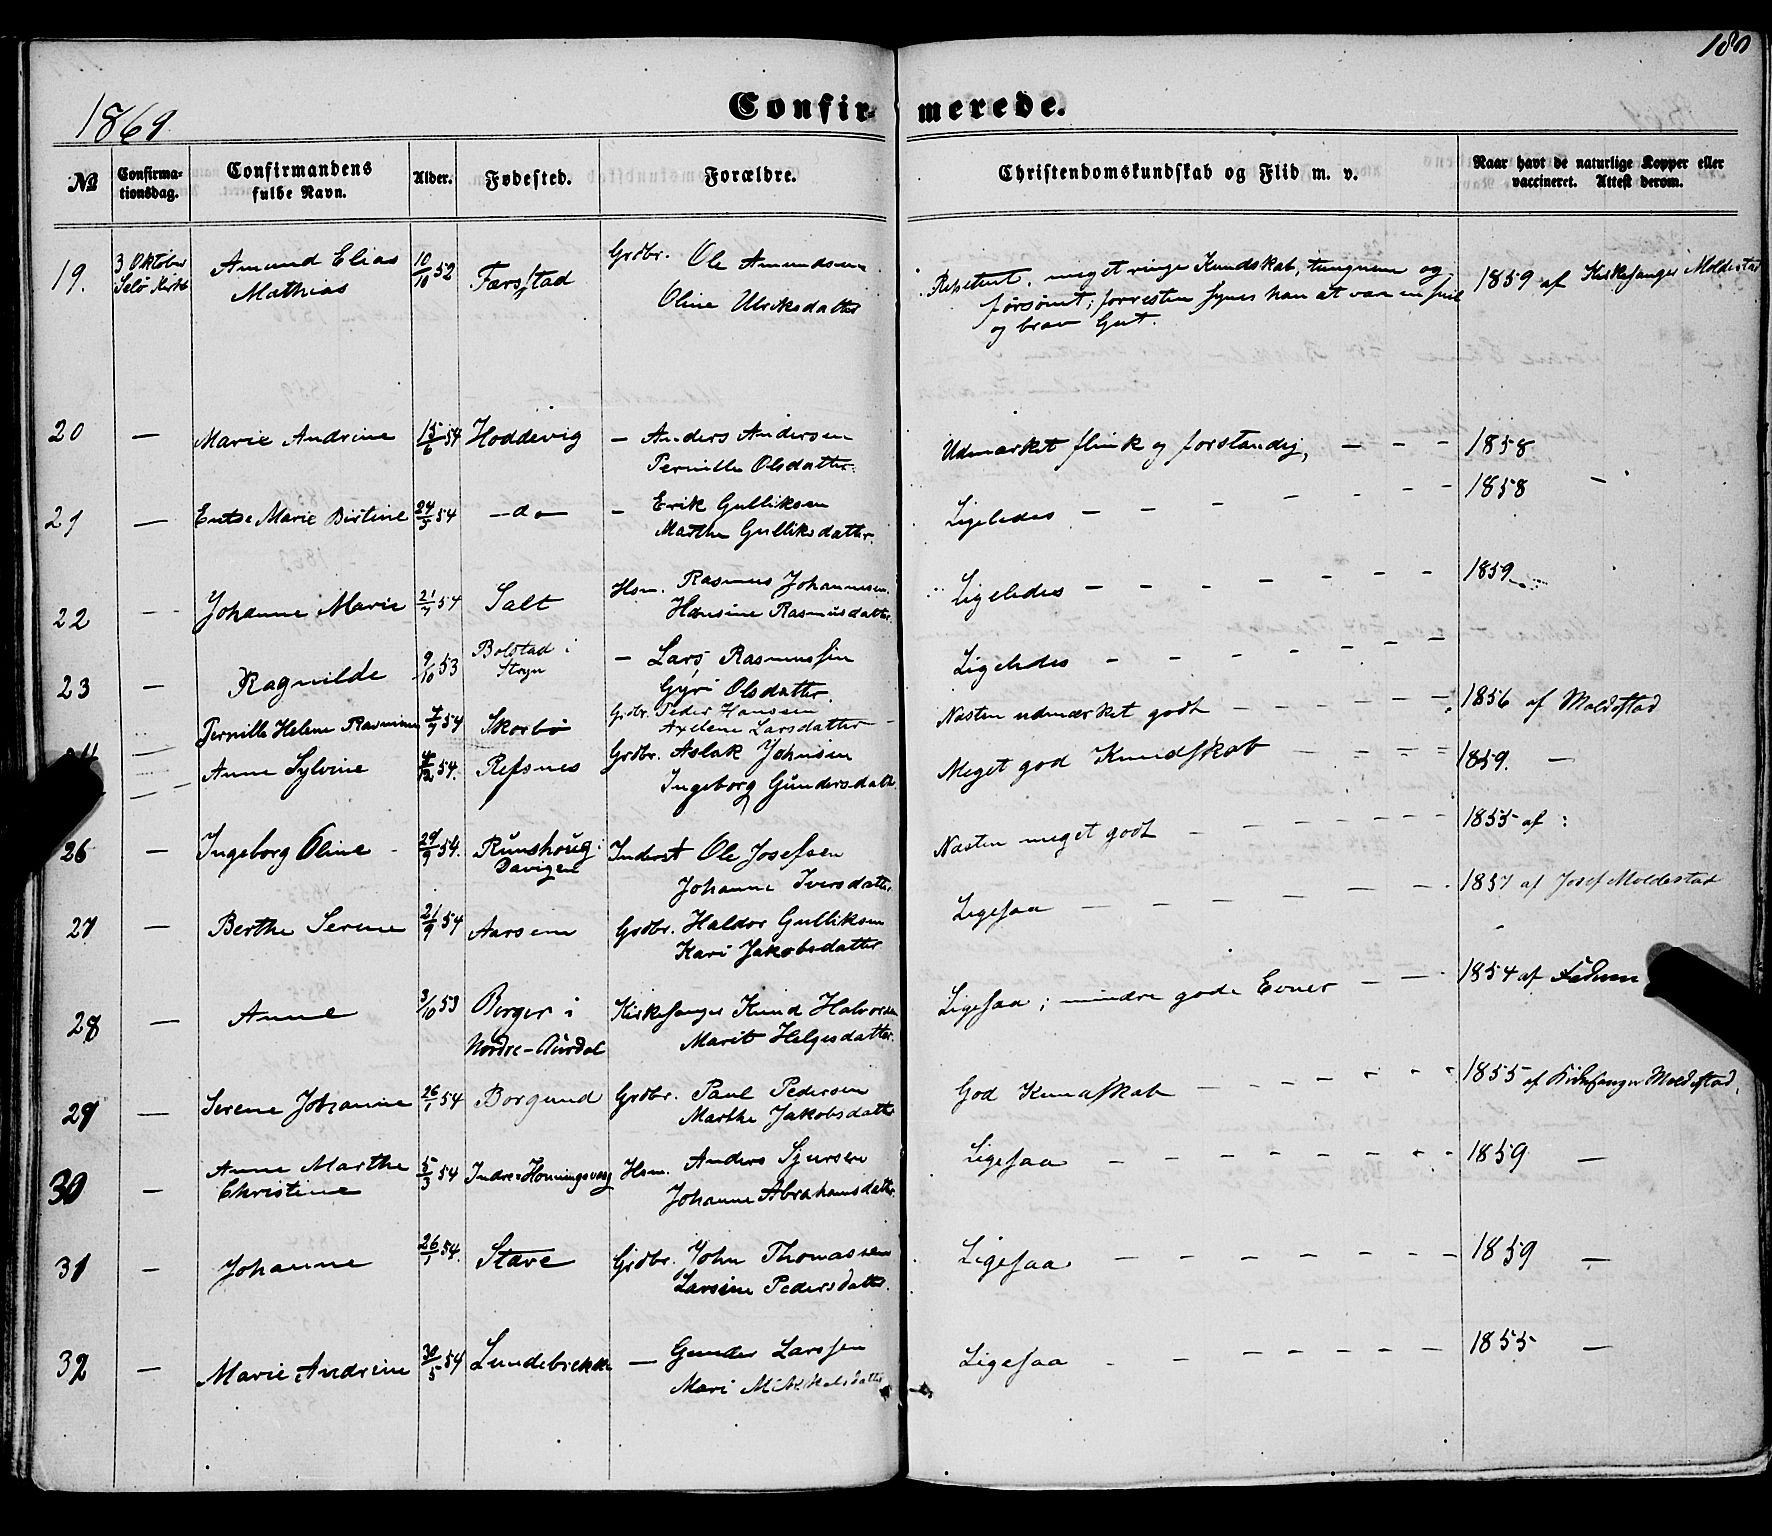 180
1869.
Confirmerede.
№
Confirmationsdag.
Confirmandens fulde Navn.
Alder.
Fødested.
Forældre.
Christendomskundskab og Flid m. v.
Naar havt de naturlige Kopper eller vaccineret. Attest derom.
19. 3 Oktober Amund Elias 10/10 52 Færstad Grdbr. Ole Amundsen Repetent. meget ringe Kundskab, tungnem og 1859 af Kirkesanger Moldestad
Selø Kirke Mathias Oline Ulriksdatter forsømt; forresten synes han at være en snil
og brav Gut.
20 — Marie Andrine 15/6 54 Hoddevig — Anders Andersen Udmærket flink og forstandig, — — 1858
Pernille Olsdatter.
21 — Marie Birtine 24/5 54 — do — — Erik Gulliksen Ligeledes — — — 1858 —
Marthe Gulliksdatter.
22 — Johanne Marie 21/7 54 Salt Hsm. Rasmus Johannesen Ligeledes — — — 1859
Hansine Rasmusdatter.
23 — Ragnilde 9/10 53 Bolstad i — Lars Rasmussen Ligeledes — — —
Stryn Gyri Olsdatter.
Pernille Helene Rasmine 7/7 54 Skorbø Grdbr. Peder Hanssen Næsten udmærket godt — — — 1856 af Moldestad
Axeliane Larsdatter
Anne Sylvine 4/12 54. Refsnes Grdbr. Aslak Johnsen Meget god Kundskab — — — 1859. —
Ingeborg Gundersdatt.
26 — Ingeborg Oline 29/9 54. Runshoug i Inderst Ole Josefsen Næsten meget godt — — — 1855 af :
Davigen Johanne Iversdatter
27 — Berthe Serine 21/9 54 Aarsem Grdbr. Haldor Gulliksen Ligesaa — — — 1857 af Josef Moldestad
Kari Jakobsdatter
28 — Anne 3/10 53 Berger i Kirkesanger Knud Halvorsen Ligesaa; mindre gode Evner — — 1854 af
Nordre-Aurdal Marit Helgesdatter.
29 — Serene Johanne 26/1 54 Borgund Grdbr. Paul Pedersen God Kundskab — — — 1855 af Kirkesanger Moldestad.
Marthe Jakobsdatter
30 — Anne Marthe 5/3 54 Indre-Honningsvaag Hsm. Anders Sjursen Ligesaa — — — 1859 —
Christine Johanne Abrahamsdatter.
31 — Johanne 26/1 54. Stave Grdbr. John Thomassen Ligesaa — — — 1859 —
Larsine Pedersdatter.
32 — Marie Andrine 30/5 54 Lundebrekke — Gunder Larssen Ligesaa — — — 1855 —
Mari Mikkelsdatter